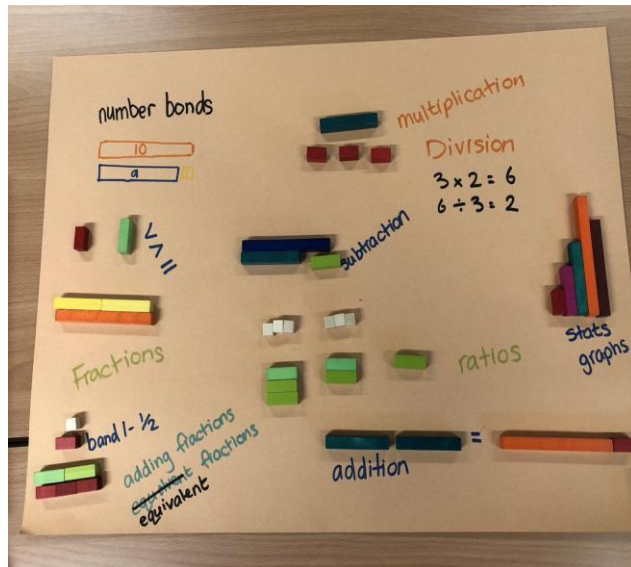 number bonds
10
9
multiplication
Division
3 x 2 = 6
6 ÷ 3 = 2
< > =
subtraction
stats
graphs
Fractions
ratios
band 1 - 1/2
adding fractions
fractions
equivalent
=
addition